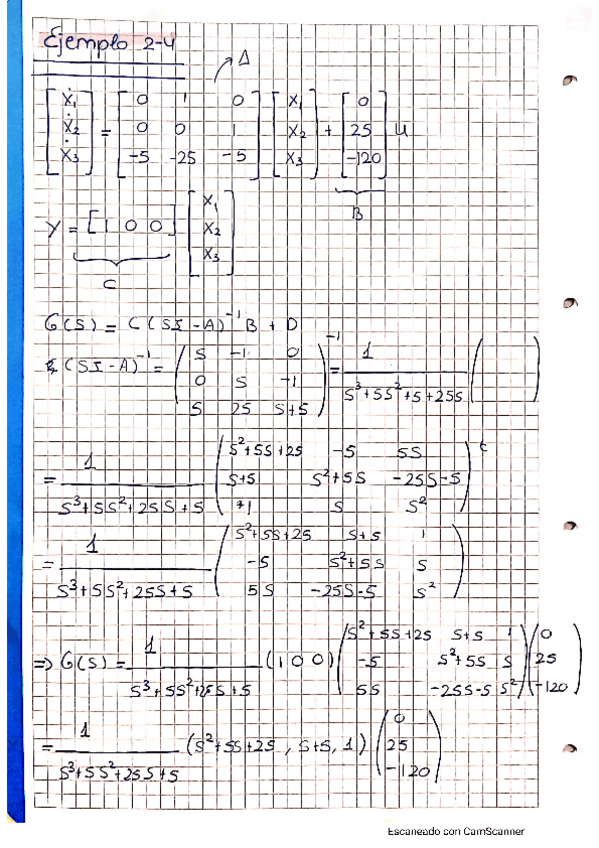 Ejemplo 2-4
A
[ẋ1 ẋ2 ẋ3] = [0 1 0; 0 0 1; -5 -25 -5] [x1 x2 x3] + [0 25 -120] u
B
Y = [1 0 0] [x1 x2 x3]
C
G(s) = C(SI-A)⁻¹B + D
(SI-A)⁻¹ = (S -1 0; 0 S -1; 5 25 S+5)⁻¹ = 1/(S³+5S²+5+25S) ( )
= 1/(S³+5S²+25S+5) (S²+5S+25 -5 5S; S+5 S²+5S -25S-5; +1 S S²)ᵗ
= 1/(S³+5S²+25S+5) (S²+5S+25 S+5 1; -5 S²+5S S; 5S -25S-5 S²)
=> G(s) = 1/(S³+5S²+25S+5) (1 0 0) (S²+5S+25 S+5 1; -5 S²+5S S; 5S -25S-5 S²) (0 25 -120)
= 1/(S³+5S²+25S+5) (S²+5S+25, S+5, 1) (0 25 -120)
Escaneado con CamScanner